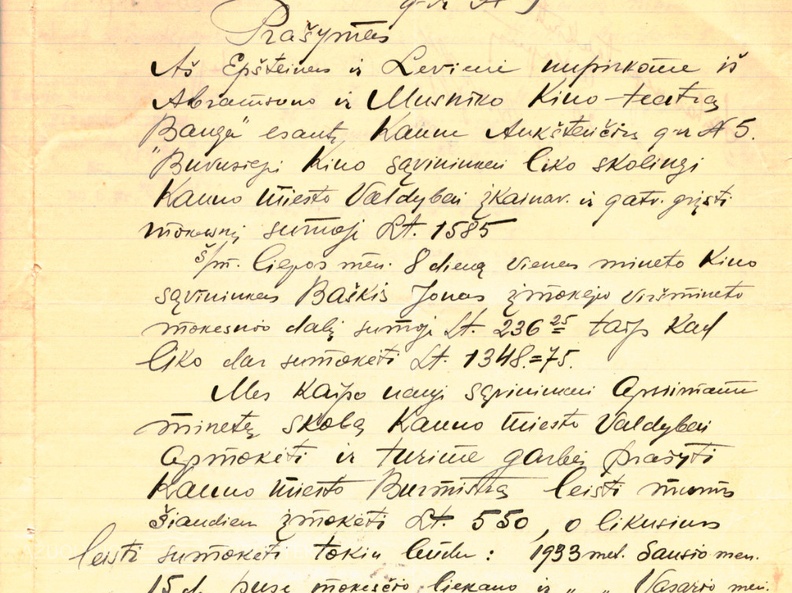 g-vė № 5
Prašymas
Aš Epšteinas ir Levienė nupirkome iš
Abramsono ir Musniko Kino-teatrą
"Banga" esantį Kaune Aukštaičių g-vė № 5.
Buvusieji Kino sąvininkai liko skolingi
Kauno Miesto Valdybai įkainav. ir gatv. grįsti
mokesnių sumoje Lt. 1585
š/m. liepos mėn. 8 dieną vienas mineto Kino
sąvininkas Baškis Jonas įmokėjo viršmineto
mokesnio dalį sumoje Lt. 236 25 taip kad
liko dar sumokėti Lt. 1348.=75.
Mes kaipo nauji sąvininkai apsiimame
minetą skolą Kauno Miesto Valdybai
apmokėti ir turime garbės prašyti
Kauno Miesto Burmistrą leisti mums
šiandien įmokėti Lt. 550, o likusius
leisti sumokėti tokiu būdu: 1933 met. Sausio men.
15 d. pusę mokesčio liekano ir " " Vasario men.